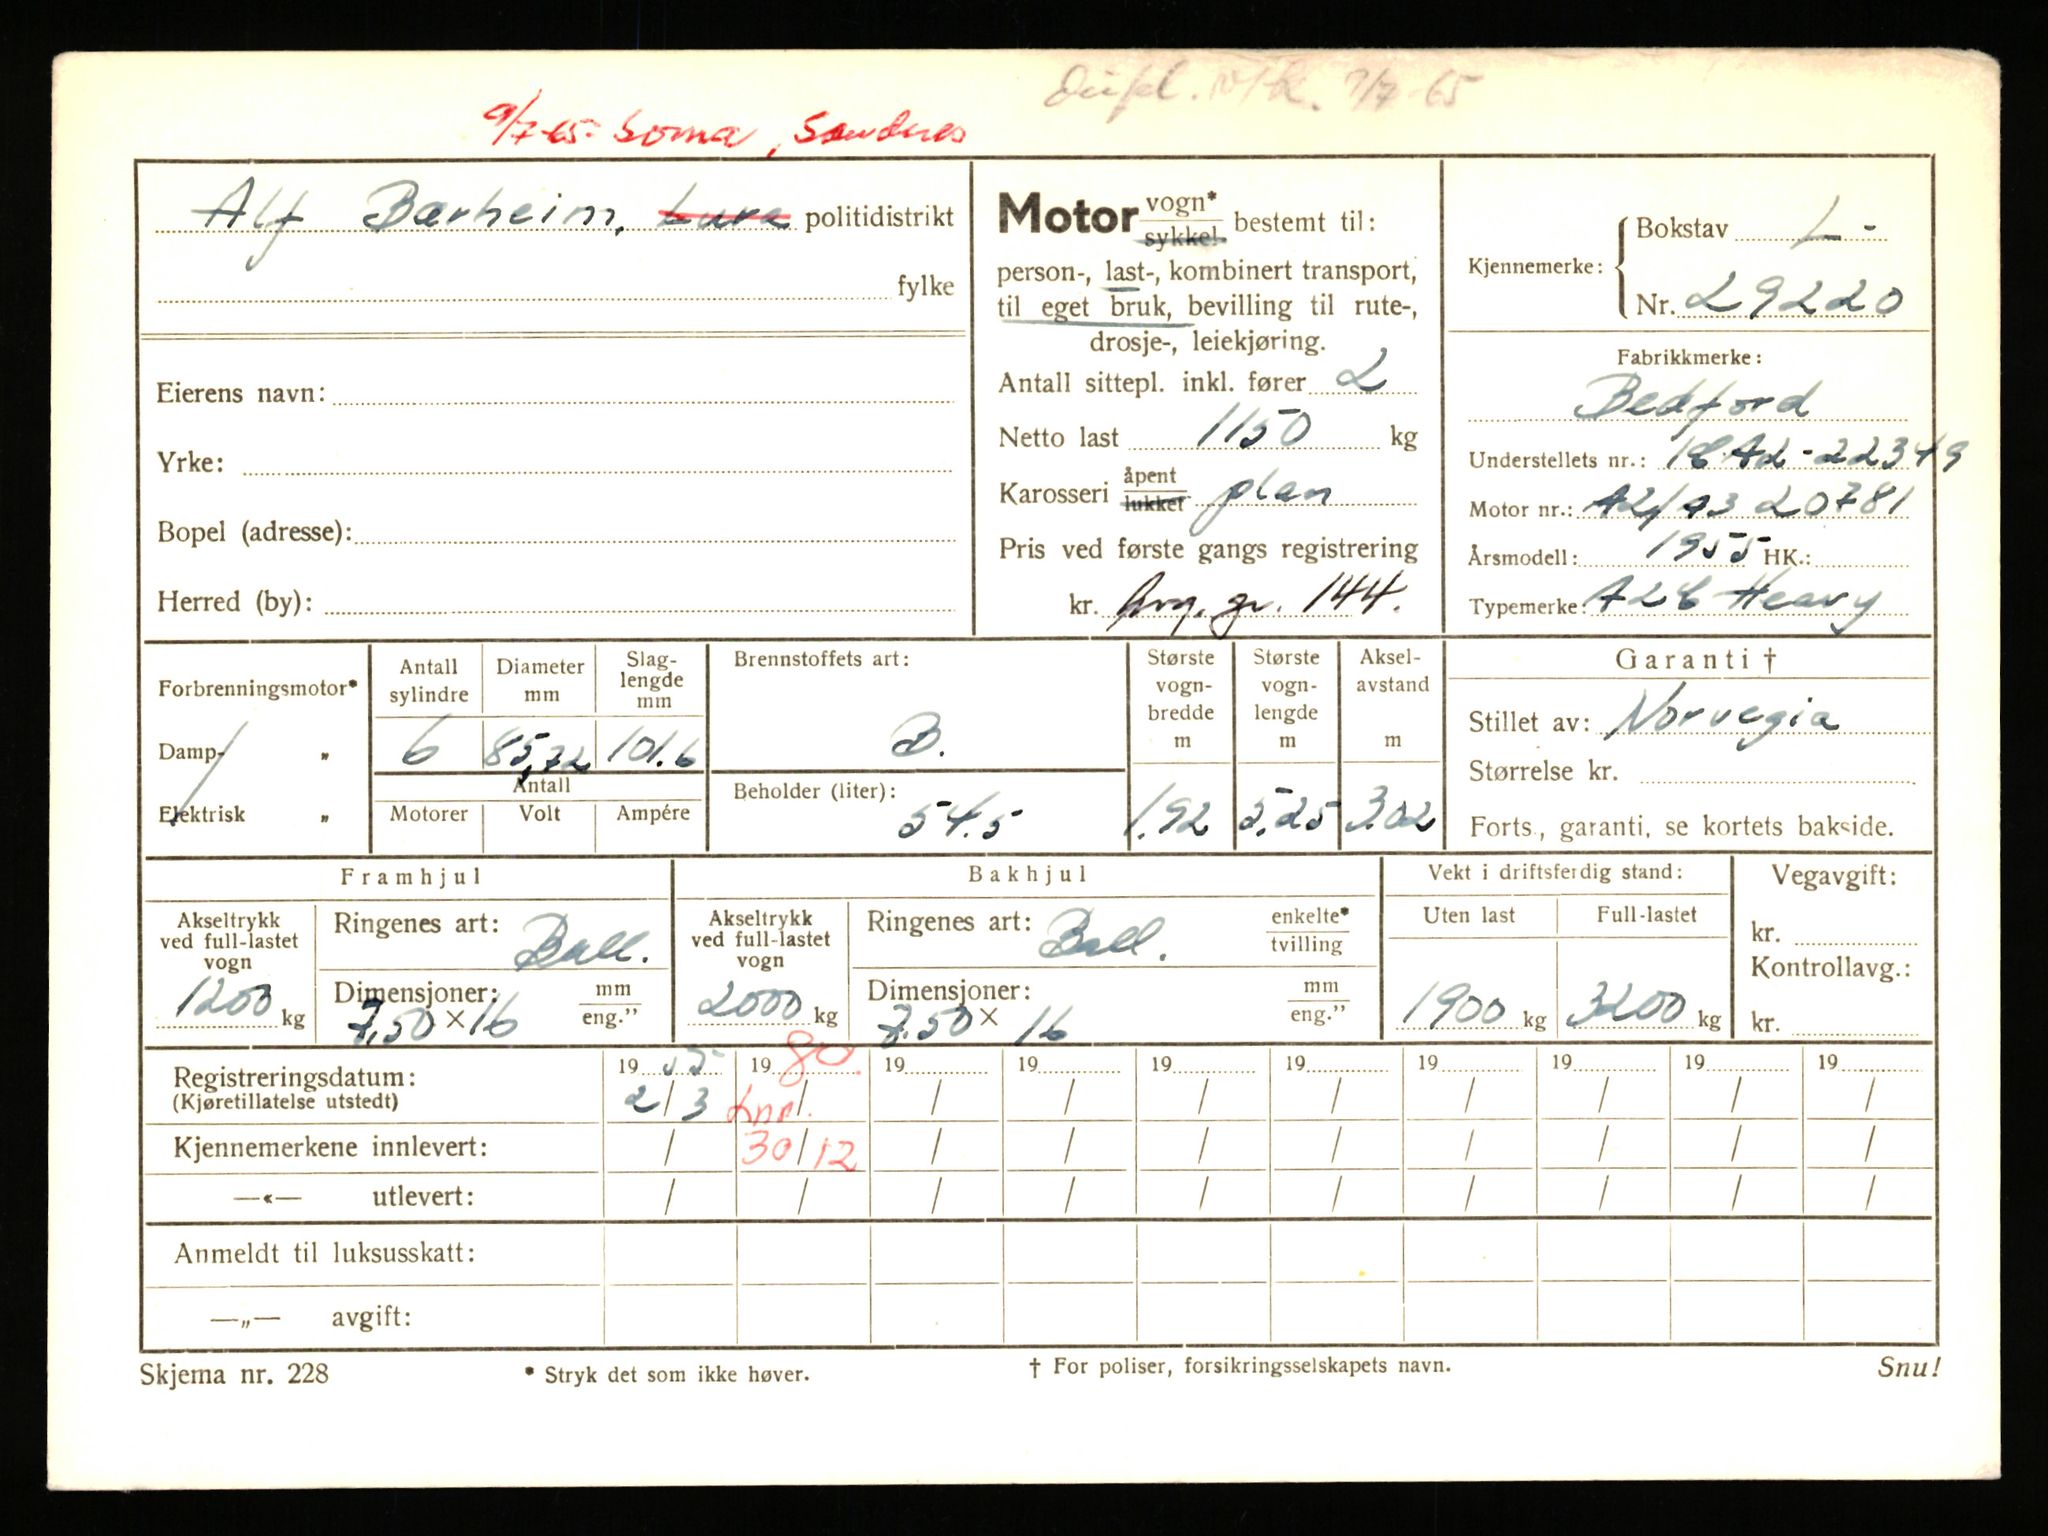 Dupl. v/k. 7/7-65
9/7-65 Soma, Sandnes
Alf Bærheim, Lura politidistrikt
fylke
Eierens navn:
Yrke:
Bopel (adresse):
Herred (by):
Motor vogn* sykkel bestemt til:
person-, last-, kombinert transport,
til eget bruk, bevilling til rute-,
drosje-, leiekjøring.
Antall sittepl. inkl. fører 2
Netto last 1150 kg
Karosseri åpent lukket plan
Pris ved første gangs registrering
kr. Avg. gr. 144.
Kjennemerke: Bokstav L-
Nr. 29220
Fabrikkmerke:
Bedford
Understellets nr.:
Motor nr.: A2/A3 20781
Årsmodell: 1955 HK.:
Typemerke: A2C Heavy
Forbrenningsmotor*
Damp- „
Elektrisk „
Antall sylindre 6
Diameter mm 85,72
Slaglengde mm 101.6
Antall
Motorer Volt Ampére
Brennstoffets art:
B.
Beholder (liter):
54.5
Største vognbredde m 1.92
Største vognlengde m 5.25
Akselavstand m 3.02
Garanti †
Stillet av: Norvegia
Størrelse kr.
Forts., garanti, se kortets bakside.
Framhjul
Akseltrykk ved full-lastet vogn 1200 kg
Ringenes art: Ball.
Dimensjoner: 7,50 × 16 mm eng."
Bakhjul
Akseltrykk ved full-lastet vogn 2000 kg
Ringenes art: Ball. enkelte* tvilling
Dimensjoner: 7.50 × 16 mm eng."
Vekt i driftsferdig stand:
Uten last Full-lastet
1900 kg 3200 kg
Vegavgift:
kr.
Kontrollavg.:
kr.
19 55 19 80. 19 19 19 19 19 19 19 19
Registreringsdatum: 2/3 Lnr. /
(Kjøretillatelse utstedt)
Kjennemerkene innlevert: / 30/12
—«— utlevert:
Anmeldt til luksusskatt:
—„— avgift:
Skjema nr. 228
* Stryk det som ikke høver.
† For poliser, forsikringsselskapets navn.
Snu!